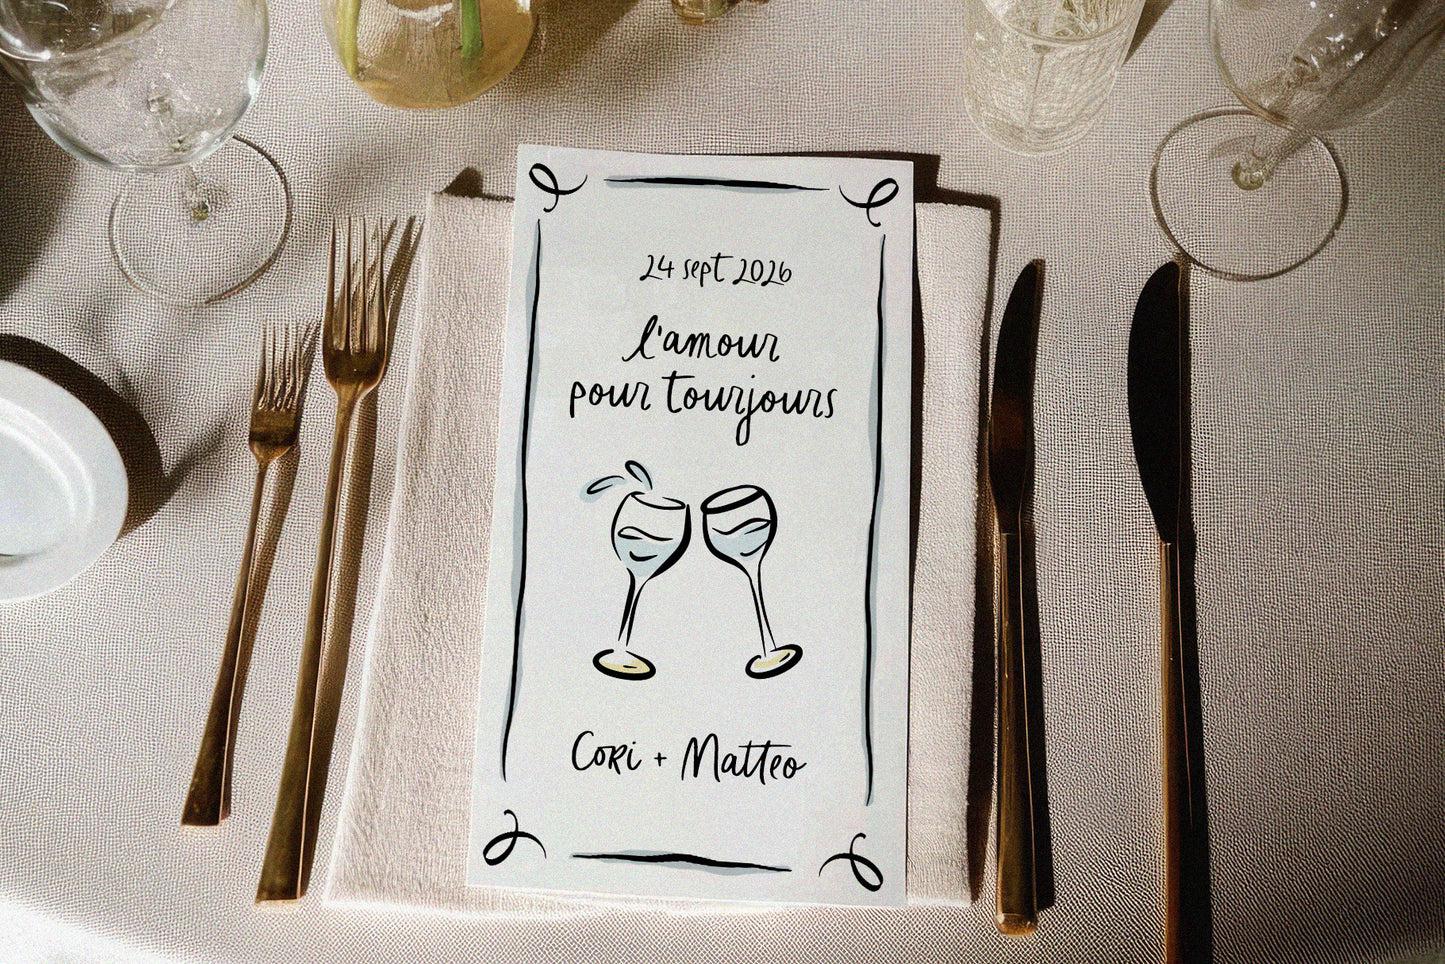 24 sept 2026
l'amour
pour tourjours
Cori + Matteo